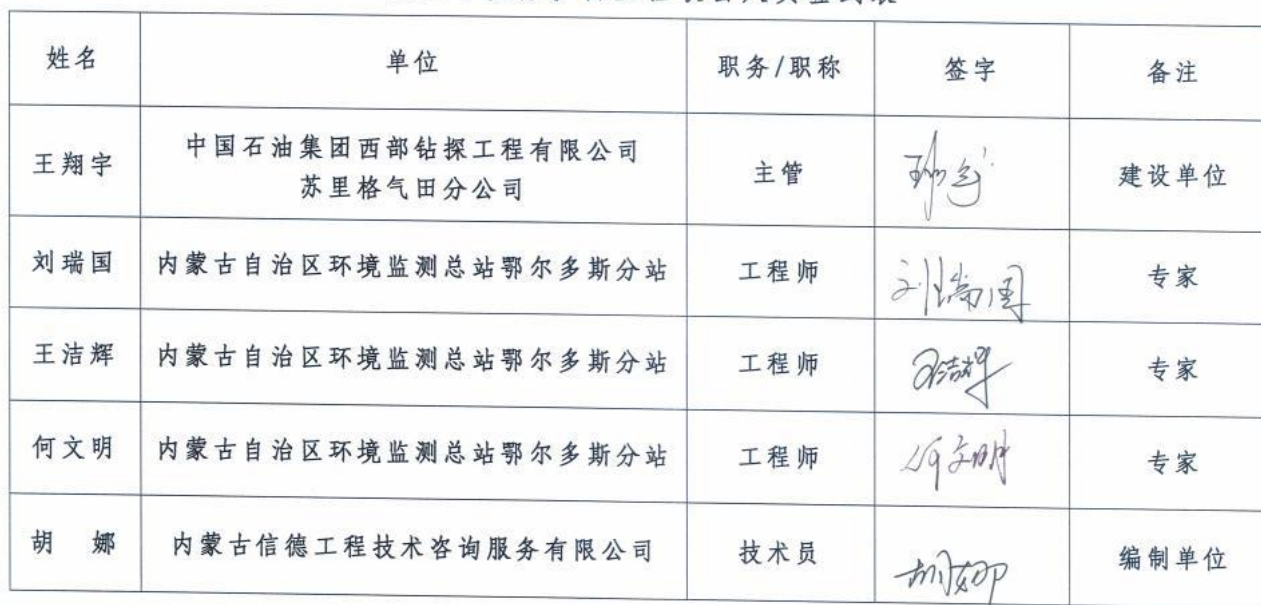 姓名 单位 职务/职称 签字 备注
王翔宇 中国石油集团西部钻探工程有限公司
苏里格气田分公司 主管 建设单位
刘瑞国 内蒙古自治区环境监测总站鄂尔多斯分站 工程师 刘瑞国 专家
王洁辉 内蒙古自治区环境监测总站鄂尔多斯分站 工程师 王洁辉 专家
何文明 内蒙古自治区环境监测总站鄂尔多斯分站 工程师 何文明 专家
胡 娜 内蒙古信德工程技术咨询服务有限公司 技术员 胡娜 编制单位